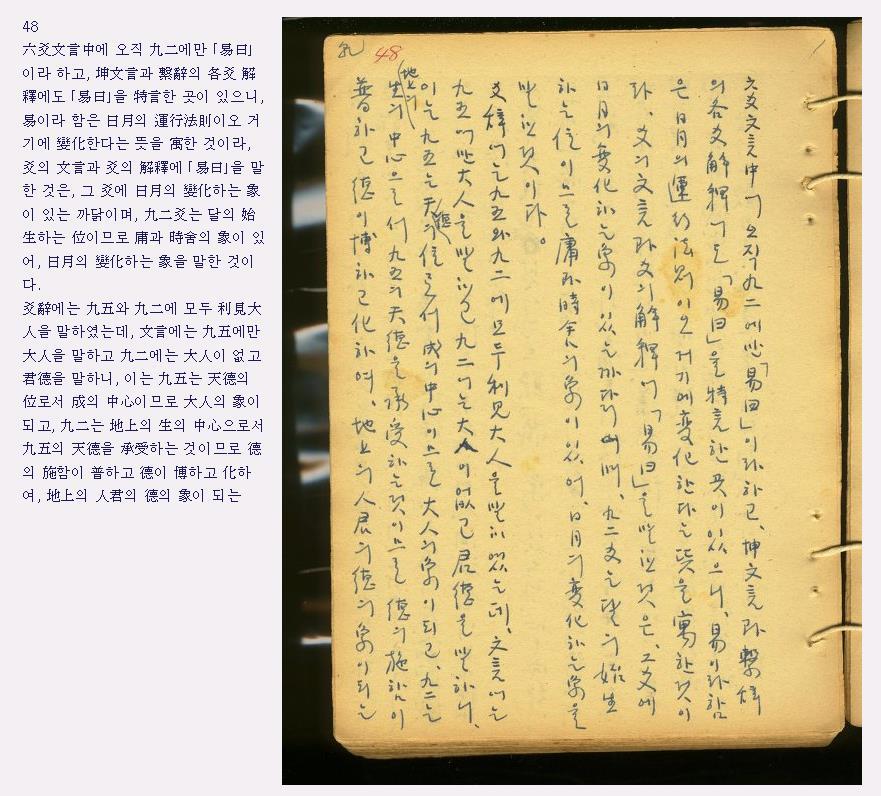 48
六爻文言中에 오직 九二에만「易曰」
이라 하고, 坤文言과 繫辭의 各爻 解
釋에도「易曰」을 特言한 곳이 있으니,
易이라 함은 日月의 運行法則이오 거
기에 變化한다는 뜻을 寓한 것이라,
爻의 文言과 爻의 解釋에「易曰」을 말
한 것은, 그 爻에 日月의 變化하는 象
이 있는 까닭이며, 九二爻는 달의 始
生하는 位이므로 庸과 時舍의 象이 있
어, 日月의 變化하는 象을 말한 것이
다.
爻辭에는 九五와 九二에 모두 利見大
人을 말하였는데, 文言에는 九五에만
大人을 말하고 九二에는 大人이 없고
君德을 말하니, 이는 九五는 天德의
位로서 成의 中心이므로 大人의 象이
되고, 九二는 地上의 生의 中心으로서
九五의 天德을 承受하는 것이므로 德
의 施함이 普하고 德이 博하고 化하
여, 地上의 人君의 德의 象이 되는
48
六爻文言中에 오직 九二에만「易曰」이라 하고, 坤文言과 繫辭
의 各爻 解釋에도「易曰」을 特言한 곳이 있으니, 易이라 함
은 日月의 運行法則이오 거기에 變化한다는 뜻을 寓한 것이
라, 爻의 文言과 爻의 解釋에「易曰」을 말한 것은, 그 爻에
日月의 變化하는 象이 있는 까닭이며, 九二爻는 달의 始生
하는 位이므로 庸과 時舍의 象이 있어, 日月의 變化하는 象을
말한 것이다.
爻辭에는 九五와 九二에 모두 利見大人을 말하였는데, 文言에는
九五에만 大人을 말하고 九二에는 大人이 없고 君德을 말하니,
이는 九五는 天德의 位로서 成의 中心이므로 大人의 象이 되고, 九二는
地上의 生의 中心으로서 九五의 天德을 承受하는 것이므로 德의 施함이
普하고 德이 博하고 化하여, 地上의 人君의 德의 象이 되는